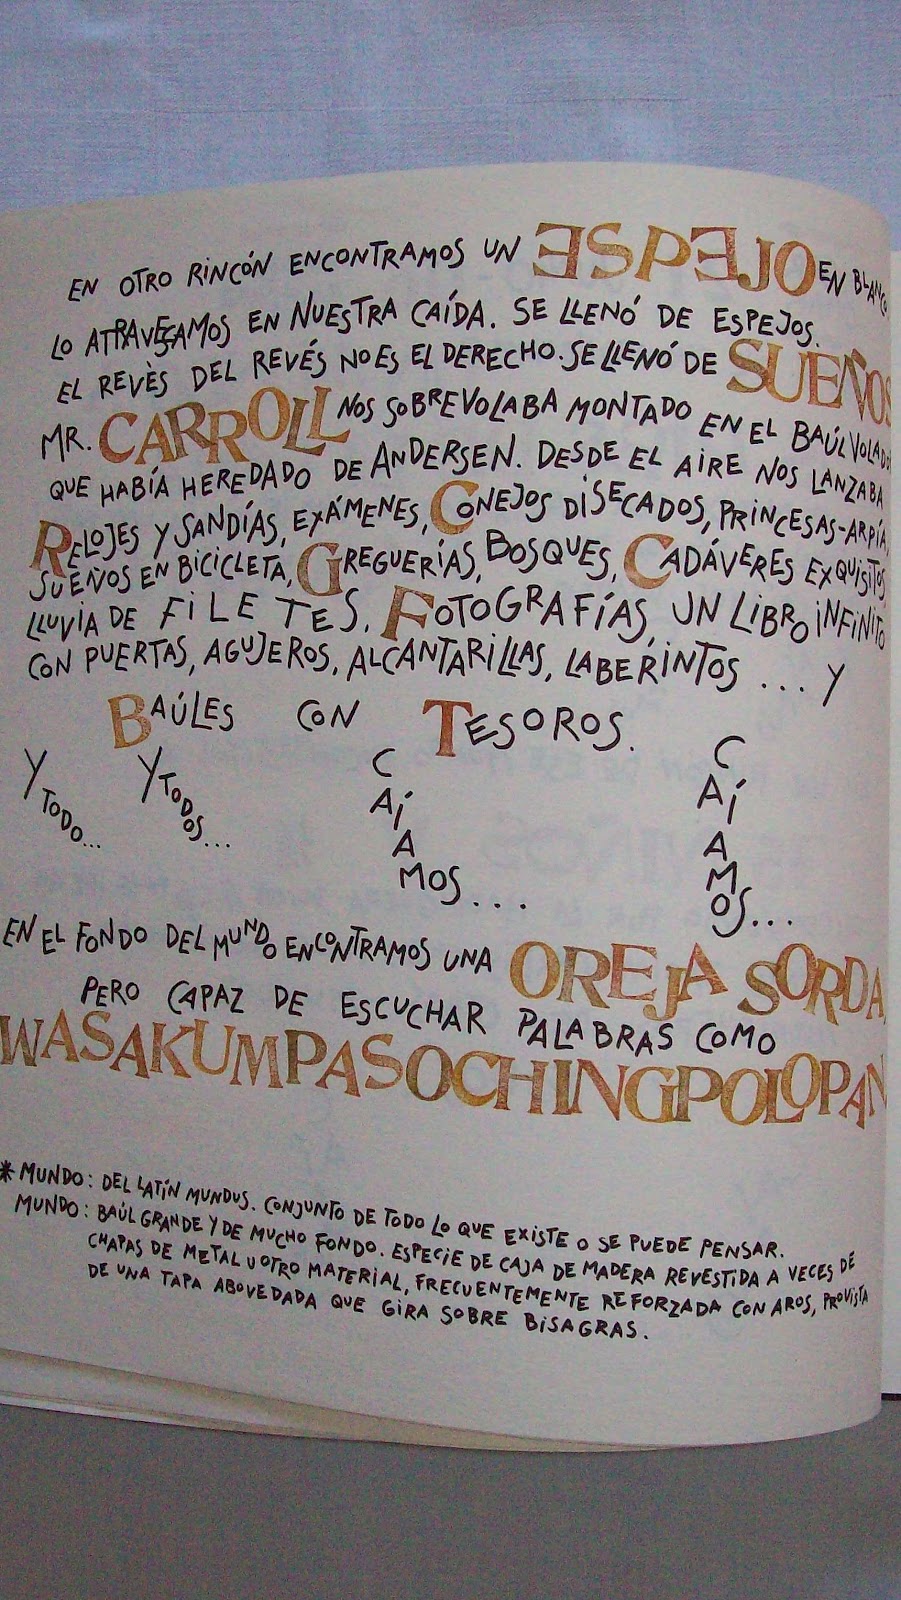 EN OTRO RINCÓN ENCONTRAMOS UN ESPEJO EN BLANCO
LO ATRAVESAMOS EN NUESTRA CAÍDA. SE LLENÓ DE ESPEJOS.
EL REVÈS DEL REVÉS NO ES EL DERECHO. SE LLENÓ DE SUEÑOS
MR. CARROLL NOS SOBREVOLABA MONTADO EN EL BAÚL VOLADOR
QUE HABÍA HEREDADO DE ANDERSEN. DESDE EL AIRE NOS LANZABA
RELOJES Y SANDÍAS, EXÁMENES, CONEJOS DISECADOS, PRINCESAS-ARPÍA,
SUEÑOS EN BICICLETA, GREGUERÍAS, BOSQUES, CADÁVERES EXQUISITOS,
LLUVIA DE FILETES, FOTOGRAFÍAS, UN LIBRO INFINITO
CON PUERTAS, AGUJEROS, ALCANTARILLAS, LABERINTOS ... Y
BAÚLES CON TESOROS.
Y TODO...
Y TODOS...
C
AÍ
A
MOS...
C
AÍ
A
M
OS...
EN EL FONDO DEL MUNDO ENCONTRAMOS UNA OREJA SORDA,
PERO CAPAZ DE ESCUCHAR PALABRAS COMO
WASAKUMPASOCHINGPOLOPAN
* MUNDO: DEL LATÍN MUNDUS. CONJUNTO DE TODO LO QUE EXISTE O SE PUEDE PENSAR.
MUNDO: BAÚL GRANDE Y DE MUCHO FONDO. ESPECIE DE CAJA DE MADERA REVESTIDA A VECES DE
CHAPAS DE METAL U OTRO MATERIAL, FRECUENTEMENTE REFORZADA CON AROS, PROVISTA
DE UNA TAPA ABOVEDADA QUE GIRA SOBRE BISAGRAS.